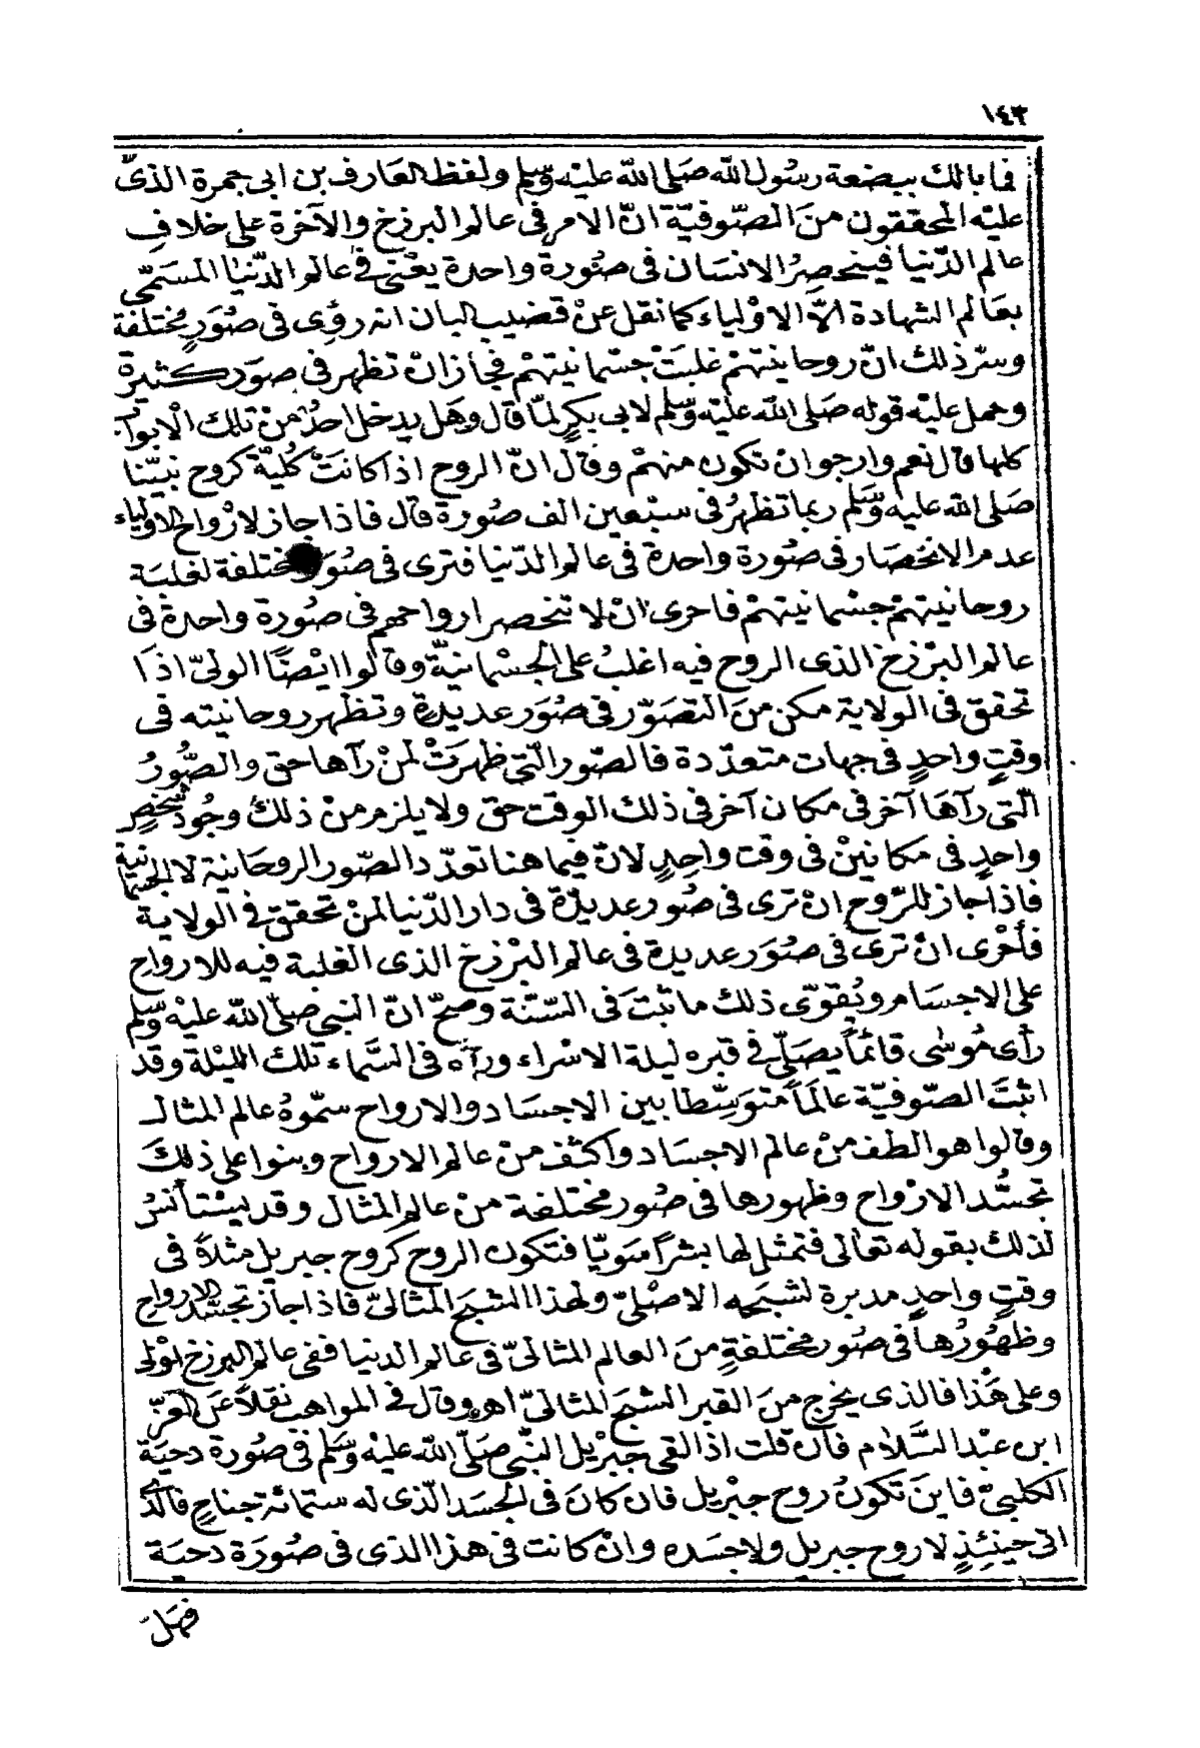 ١٤٣
فما بالك ببضعة رسُول الله صَلى الله عليْه وسّلم ولفظ العَارف بن ابى جمرة الذىّ
عليْه المحققون منَ الصّوفيّة انّ الامر فى عالم البرزخ والآخرة على خلافِ
عالم الدّنيا فينحصِرُ الانسَان فى صُورة واحدة يعْنى فى عالم الدّنيا المسَمّى
بعَالم الشهادة الاّ الاوْلياء كما نقل عنْ قضيب البان انه رؤى فى صُوَرٍ مُختلفة
وسرّ ذلك انّ روحانيتهمْ غلبَتْ جسْمانيتهمْ فجاز انْ تظهر فى صوَر كثيرة
وحمل عليْه قوله صَلى الله عليْه وسّلم لابى بكرٍ لمّا قال وهَل يدخل احدٌ منْ تلك الْابواب
كلها قال نعم وارجو انْ تكون منهمْ وقال انّ الروح اذا كانَتْ كُليّة كروح نبيّنا
صَلى الله عليْه وسّلم ربما تظهرُ فى سبْعين الف صُورة قال فاذا جاز لارْواح الاوْلياء
عدم الانحصَار فى صُورة واحدة فى عالم الدّنيا فترى فى صُوَر مختلفة لغلبَة
روحانيتهمْ جسْمانيتهمْ فاحرى انْ لا تنحصر ارواحهم فى صُورة واحدة فى
عالم البرْزخ الذى الروح فيه اغلبُ على الجسْمانيّة وقالوا ايْضًا الولىّ اذَا
تحقق فى الولاية مكن منَ التصَوّر فى صُوَر عديدة وتظهر روحانيته فى
وقتٍ واحدٍ فى جهات متعدّدة فالصّور التى ظهرَتْ لمنْ رآها حق والصّورُ
التى رآهَا آخر فى مكان آخر فى ذلك الوقت حق ولا يلزم منْ ذلك وجُود شخصٍ
واحدٍ فى مكانيْن فى وقت واحِدٍ لانّ فيما هنا تعدّد الصّور الروحَانية لا الجسْمانية
فاذا جاز للرّوح انْ ترى فى صُور عديدة فى دار الدّنيا لمنْ تحقق فى الولاية
فأحْرى انْ ترى فى صُوَر عديدة فى عالم البرْزخ الذى الغلبة فيه للارواح
على الاجسَام ويُقوّى ذلك ما ثبتَ فى السّنّة وصحّ انّ النبى صلىّ الله عليْه وسّلم
رأى مُوسٰى قائمًا يصَلّى فى قبره ليلة الاسْراء ورآه فى السَّماء تلك الليْلة وقد
اثبتَ الصّوفيّة عالَمًا متوَسِّطا بين الاجسَاد والارواح سمّوهُ عالم المثال
وقالوا هو الطف منْ عالم الاجسَاد واكثف منْ عالم الارواح وبنوا على ذلِكَ
تجسُّد الارْواح وظهورها فى صُور مختلفة منْ عالم المثال وقد يسْتأنسُ
لذلك بقوله تعَالى فتمثل لها بشرًا سَويّا فتكون الروح كروح جبريل مثلاً فى
وقتٍ واحدٍ مدبرة لشبَحِه الاصْلىّ ولهذا الشبَح المثالىّ فاذا جاز تجسّد الارواح
وظهُورُها فى صُور مختلفةٍ منَ العالم المثالىّ فى عالم الدنيا ففى عالم البرزخ اوْلى
وعلى هٰذا فالذى يخرج منَ القبر الشبَح المثالىّ اهـ وقال فى المواهب نقلاً عَن العزّ
ابن عبْد السَّلام فان قلت اذا لقى جبْريل النّبى صَلّى الله عليْه وسّلم فى صُورة دحيَة
الكلبىّ فاينَ تكونُ روح جبْريل فان كانَ فى الجسَد الّذى له ستمائة جناحٍ فالذى
اتى حينئِذٍ لا روح جبريل ولا جسَده وانْ كانت فى هذا الذى فى صُورَة دحيَة
فهَل